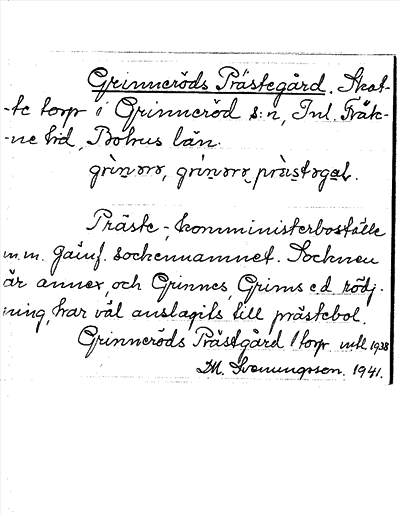 Grinneröds Prästegård. Skat-
-te torp i Grinneröd s:n, Inl. Fräk-
-ne hd, Bohus län.
grìn̥ərə, grìn̥ərə præ̀stəgaḷ.
Präste-, komministerboställe
m.m. Jämf. sockennamnet. Socknen
är annex, och Grinnes, Grims ed. rödj-
ning, har väl anslagits till prästebol.
Grinneröds Prästgård 1 torp mtl. 1938
M. Svenungsson. 1941.